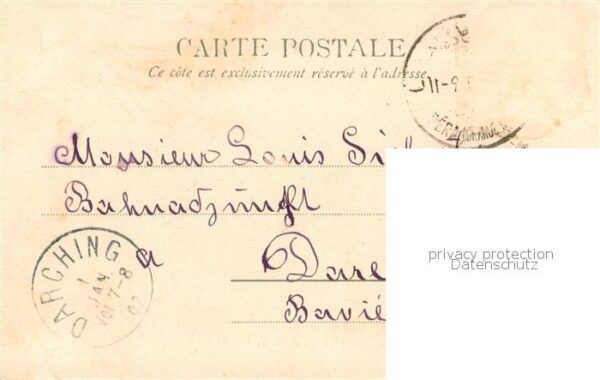 CARTE POSTALE
Ce côté est exclusivement réservé à l'adresse
11-9
Monsieur Louis
Bahnadjunkt
a Dare
Bavié
DARCHING
1
JAN
7-8
privacy protection
Datenschutz